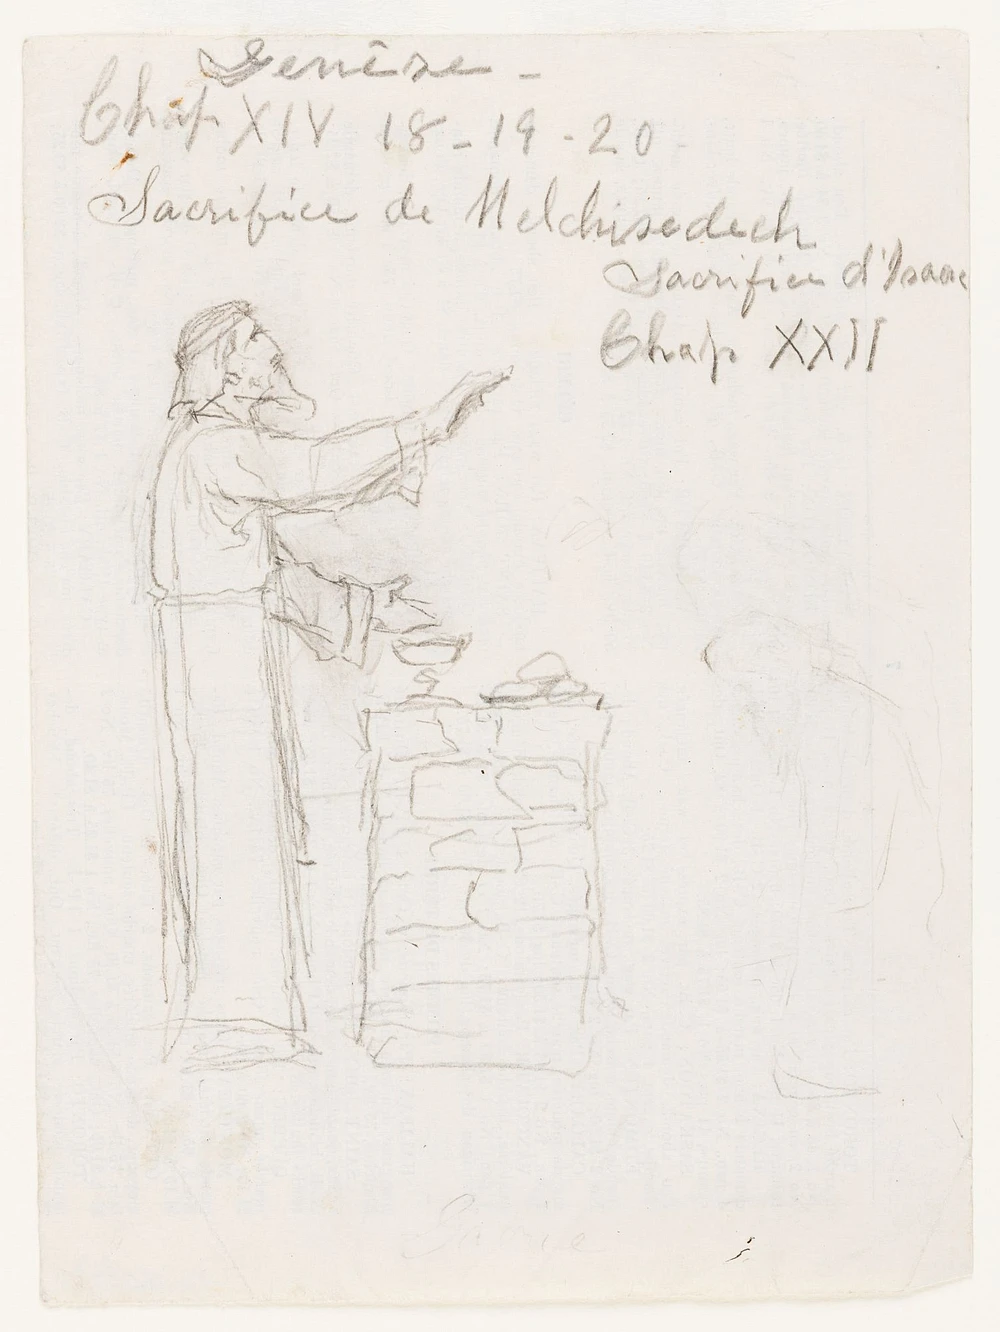 Genèse -
Chap XIV 18-19-20
Sacrifice de Melchisedech
Sacrifice d'Isaac
Chap XXII